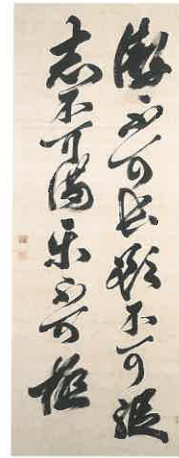 敖不可長欲不可從
志不可滿樂不可極